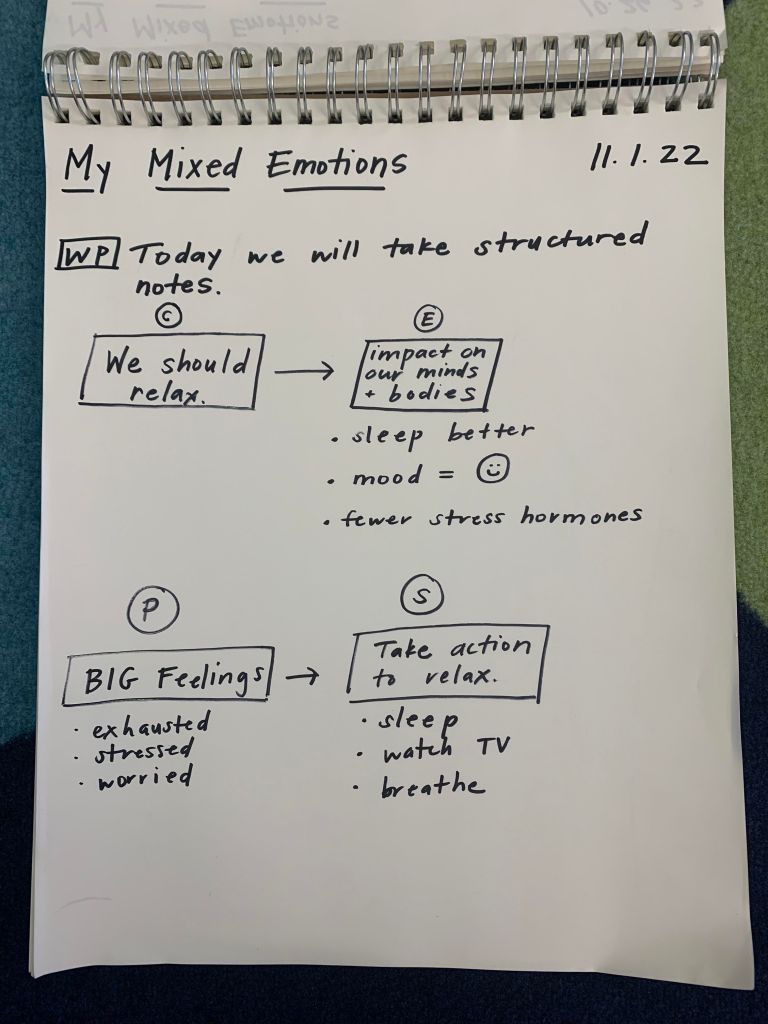 My Mixed Emotions 11.1.22
WP Today we will take structured
notes.
C
We should
relax.
E
impact on
our minds
+ bodies
• sleep better
• mood = ☺
• fewer stress hormones
P
BIG Feelings
• exhausted
• stressed
• worried
S
Take action
to relax.
• sleep
• watch TV
• breathe